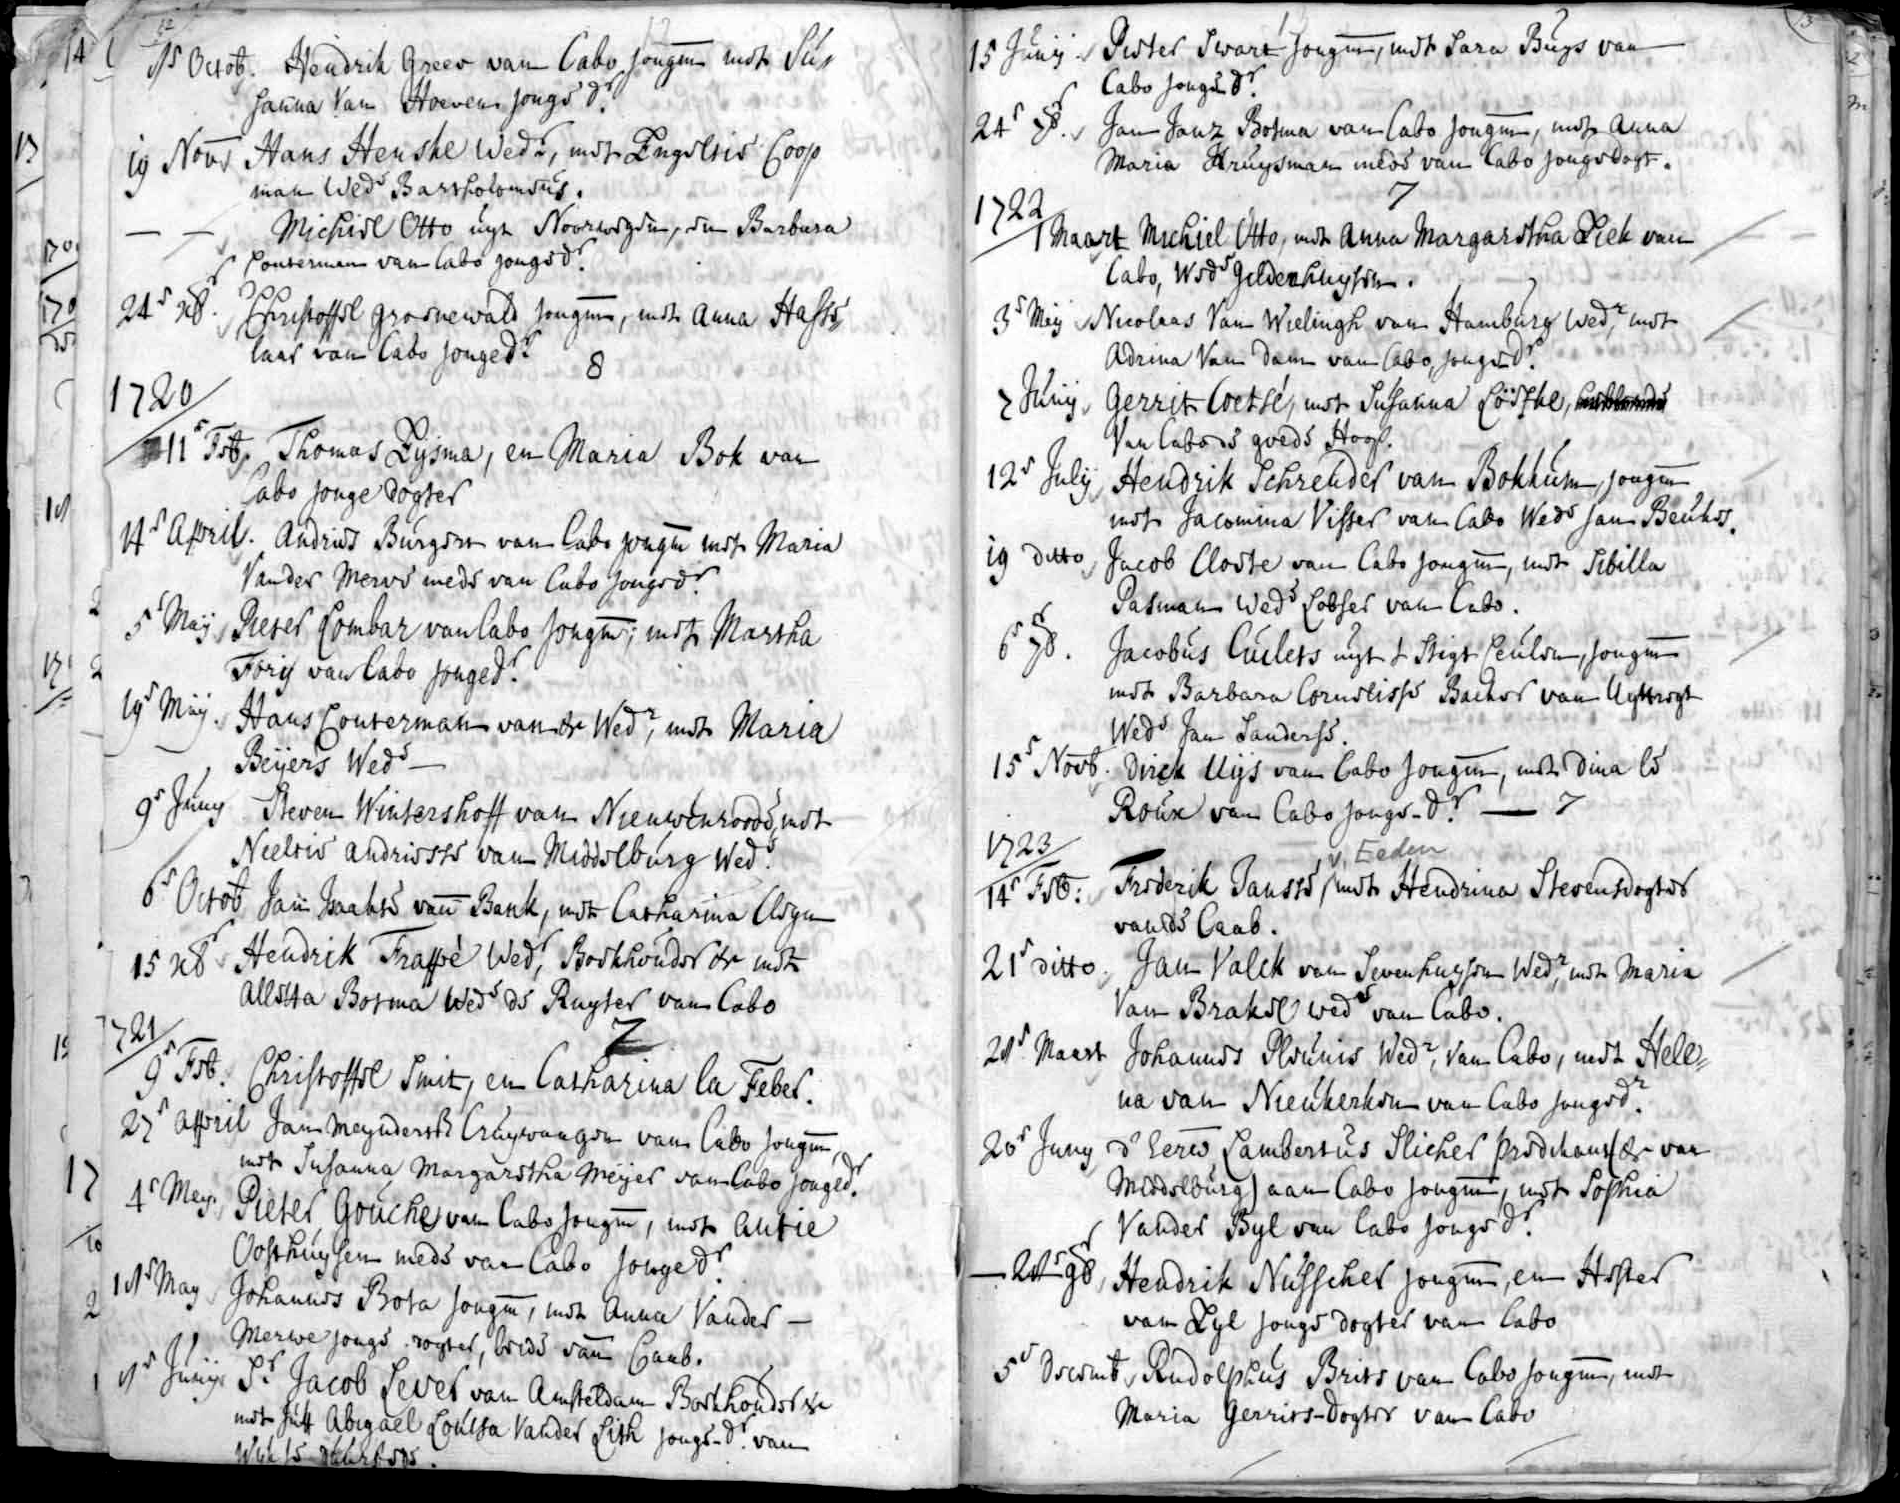 12
15 Octob. Hendrik Greev van Cabo jongm met Su„
sanna Van Hoeven jonge dr.
19 Novr Hans Henske Wedr, met Engeltie Coop
man Wede Bartholomeus.
— — Michiel Otto uyt Noorwegen, en Barbara
Couterman van Cabo jonge dr.
24e xbr. Christoffel Groenewald jongm, met Anna Hasse„
laar van Cabo jonge dr.
8
1720
11e Feb. Thomas Zysma, en Maria Bok van
Cabo jonge dogter
14e April. Andries Burgert van Cabo jongm met Maria
Vander Merwe mede van Cabo jonge dr
5e Maij Pieter Lombar van Cabo jongm; met Martha
Forij van Cabo jonge dr.
19e Maij. Hans Couterman van &r Wedr, met Maria
Beijers Wede —
9e Juny Steven Wintershoff van Nieuwenroode, met
Neeltie Andriesse van Middelburg Wede.
6e Octob Jan Isaakse van Bank, met Catharina Cleyn
15 xbr Hendrik Frappé Wedr, Boekhouder &r met
Alletta Botma Wede de Ruyter van Cabo
7
1721
9e Feb. Christoffel Smit, en Catharina la Feber.
27e April Jan Meyndertsz Cruywangen van Cabo jongm,
met Susanna Margaretha Meijer van Cabo jonge dr.
4e Mey. Pieter Gouche van Cabo jongm, met Antie
Oosthuysen mede van Cabo jonge dr.
18e May Johannes Bota jongm, met Anna Vander —
Merwe jonge dogter, beide van Caab.
Junij Sr. Jacob Lever van Amsteldam Boekhouder &r
met Juff Abigael Louisa Vander Lith jonge-dr. van
Wijk
15 Junij. Pieter Swart jongm, met Sara Buys van
Cabo jonge dr.
24e 7br. Jan Janz Botma van Cabo jongm, met Anna
Maria Kruysman mede van Cabo jonge dogt.
7
1722
1 Maart Michiel Otto, met Anna Margaretha Ziek van
Cabo, Wede Gildenhuysen.
3e Mey Nicolaas Van Wielingh van Hamburg Wedr, met
Adrina Van Dam van Cabo, jonge dr.
7 Junij, Gerrit Coetsé, met Susanna Löefke,
Van Cabo de goede Hoop.
12e Julij Hendrik Schreuder van Bokhum, jongm
met Jacomina Visser van Cabo Wede Jan Beukes.
19 ditto Jacob Cloete van Cabo jongm, met Sibilla
Pasman Wede Lobser van Cabo.
6e 7br. Jacobus Culers uyt t Stigt Ceulen, jongm
met Barbara Cornelisse Backer van Uyttregt
Wede Jan Sanderse.
15e Novb. Dirck Uijs van Cabo jongm, met Dina le
Roux van Cabo jonge-dr. — 7
1723
v. Eeden
14e Feb: Frederik Jansse, met Hendrina Stevensdogter
van de Caab.
21e ditto Jan Valck van Sevenhuysen Wedr, met Maria
Van Brakel wede van Cabo.
28e Maart Johannes Pleunis Wedr, Van Cabo, met Hele„
na van Nieukerken van Cabo jonge dr.
20e Juny d' Eerw Lambertus Slicher predikant (&r van
Middelburg) aan Cabo jongm, met Sophia
Vander Byl van Cabo jonge dr.
— 28e 9br, Hendrik Nusscher jongm, en Hester
van Zyl jonge dogter van Cabo
5e Decemb, Rudolphus Brits van Cabo jongm, met
Maria Gerrits-dogter van Cabo